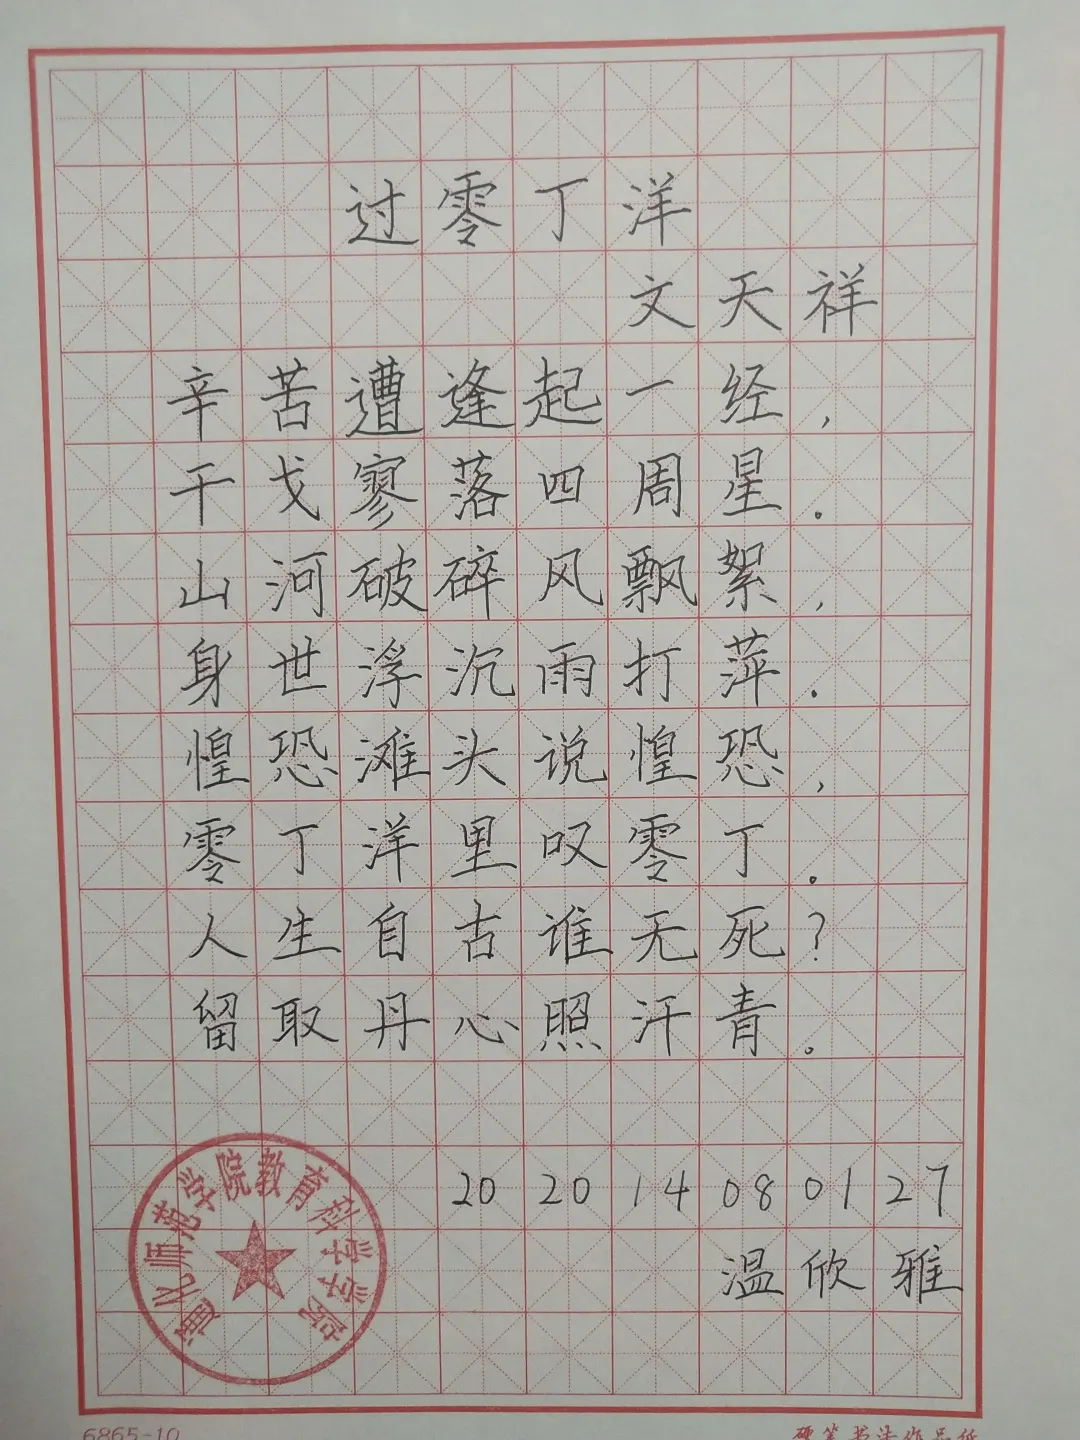 过零丁洋
文天祥
辛苦遭逢起一经,
干戈寥落四周星.
山河破碎风飘絮,
身世浮沉雨打萍.
惶恐滩头说惶恐,
零丁洋里叹零丁.
人生自古谁无死?
留取丹心照汗青.
202014080127
温欣雅
通化师范学院教育科学学院
6865-10
硬笔书法作品纸